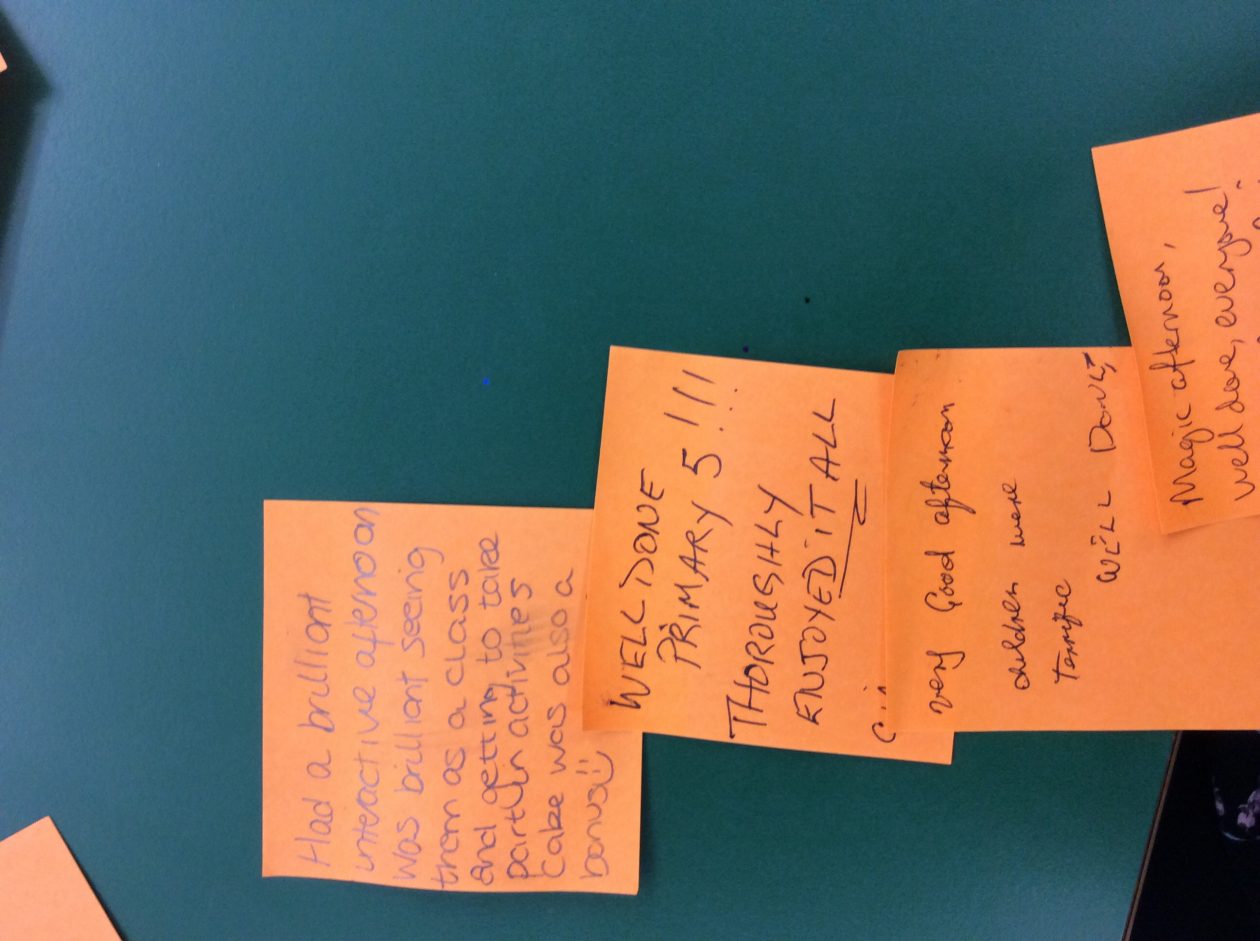 Had a brilliant
interactive afternoon
Was brilliant seeing
them as a class
and getting to take
part in activities
Cake was also a
bonus
WELL DONE
PRIMARY 5 !!!
THOROUGHLY
ENJOYED IT ALL
very Good afternoon
children were
Terrific
WELL DONE
Magic afternoon,
well done, everyone!